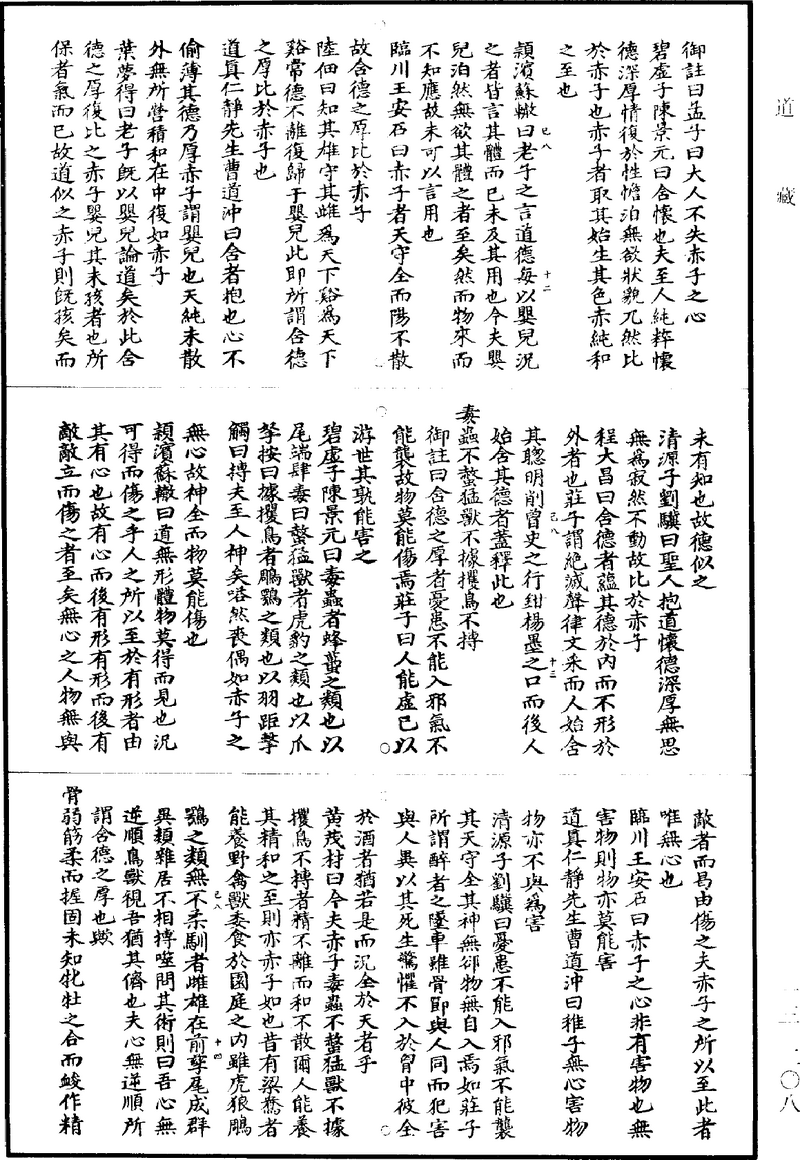 道藏
御註曰孟子曰大人不失赤子之心
碧虛子陳景元曰含懷也夫至人純粹懷
德深厚情復於性憺泊無欲狀貌兀然比
於赤子也赤子者取其始生其色赤純和
之至也
潁濱蘇轍曰老子之言道德每以嬰兒況
之者皆言其體而已未及其用也今夫嬰
兒泊然無欲其體之者至矣然而物來而
不知應故未可以言用也
臨川王安石曰赤子者天守全而陽不散
故含德之厚比於赤子
陸佃曰知其雄守其雌爲天下谿爲天下
谿常德不離復歸于嬰兒此即所謂含德
之厚比於赤子也
道真仁靜先生曹道沖曰含者抱也心不
偷薄其德乃厚赤子謂嬰兒也天純未散
外無所營積和在中復如赤子
葉夢得曰老子既以嬰兒論道矣於此含
德之厚復比之赤子嬰兒其未孩者也所
保者氣而已故道似之赤子則既孩矣而
己八
十二
未有知也故德似之
清源子劉驥曰聖人抱道懷德深厚無思
無爲寂然不動故比於赤子
程大昌曰含德者蘊其德於内而不形於
外者也莊子謂絶滅聲律文采而人始含
其聰明削曾史之行鉗楊墨之口而後人
始含其德者蓋釋此也
毒蟲不螫猛獸不據攫鳥不搏
御註曰含德之厚者憂患不能入邪氣不
能襲故物莫能傷焉莊子曰人能虛己以
游世其孰能害之
碧虛子陳景元曰毒蟲者蜂蠆之類也以
尾端肆毒曰螫猛獸者虎豹之類也以爪
拏按曰據攫鳥者鵰鶚之類也以羽距擊
觸曰搏夫至人神矣嗒然喪偶如赤子之
無心故神全而物莫能傷也
潁濱蘇轍曰道無形體物莫得而見也況
可得而傷之乎人之所以至於有形者由
其有心也故有心而後有形有形而後有
敵敵立而傷之者至矣無心之人物無與
己八
十三
敵者而曷由傷之夫赤子之所以至此者
唯無心也
臨川王安石曰赤子之心非有害物也無
害物則物亦莫能害
道真仁靜先生曹道沖曰稚子無心害物
物亦不與爲害
清源子劉驥曰憂患不能入邪氣不能襲
其天守全其神無郤物無自入焉如莊子
所謂醉者之墜車雖骨節與人同而犯害
與人異以其死生驚懼不入於胷中彼全
於酒者猶若是而況全於天者乎
黄茂材曰今夫赤子毒蟲不螫猛獸不據
攫鳥不搏者精不離而和不散爾人能養
其精和之至則亦赤子如也昔有梁鴦者
能養野禽獸委食於園庭之内雖虎狼鵰
鶚之類無不柔馴者雌雄在前孳尾成群
異類雜居不相搏噬問其術則曰吾心無
逆順鳥獸視吾猶其儕也夫心無逆順所
謂含德之厚也歟
骨弱筋柔而握固未知牝牡之合而䘒作精
己八
十四
一三－一〇八